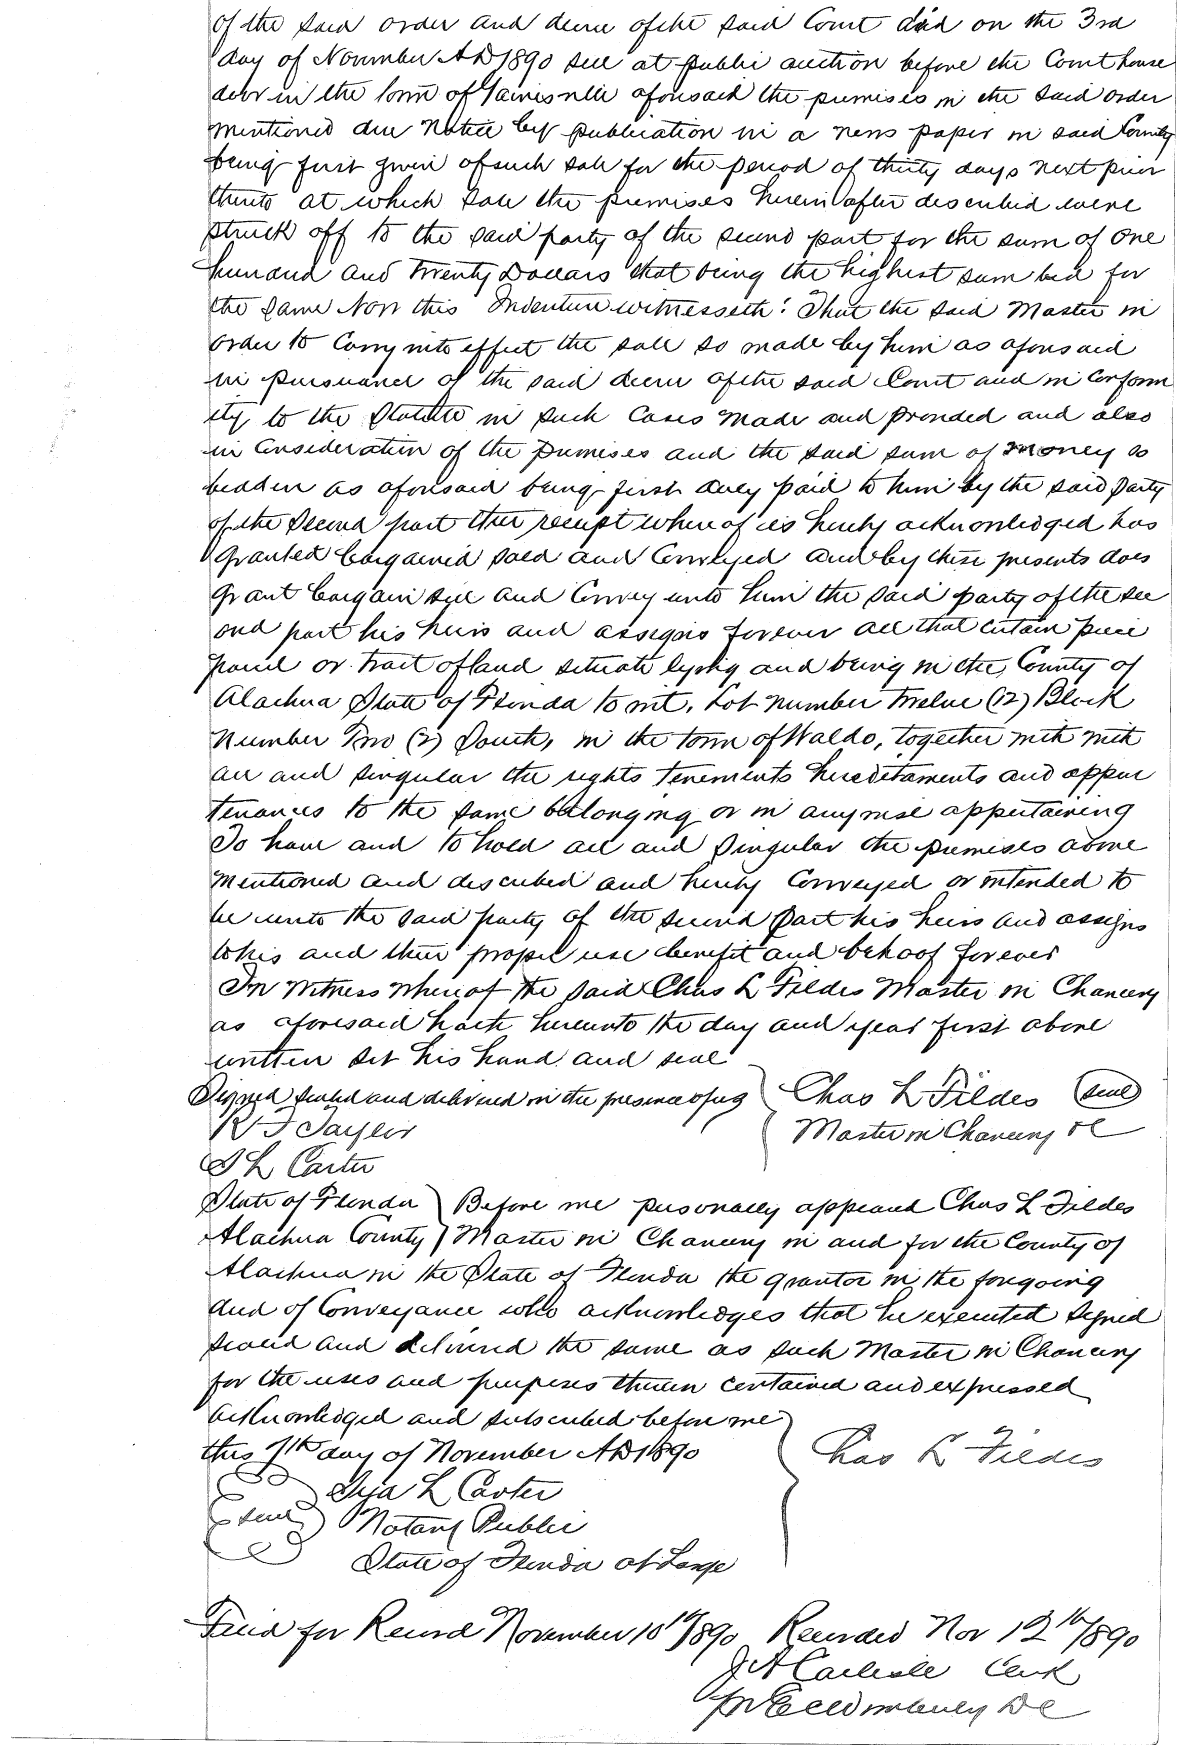 of the said order and decree of the said Court did on the 3rd
day of November AD 1890 sell at public auction before the Courthouse
door in the town of Gainesville aforesaid the premises in the said order
mentioned due Notice by publication in a news paper in said County
being first given of such sale for the period of thirty days next prior
thereto at which sale the premises herein after described were
struck off to the said party of the second part for the sum of One
hundred and twenty Dollars that being the highest sum bid for
the same Now this Indenture witnesseth: That the said Master in
order to Carry into effect the sale so made by him as aforesaid
in pursuance of the said decree of the said Court and in conform
ity to the Statute in such Cases Made and provided and also
in Consideration of the premises and the said sum of Money so
bidden as aforesaid being first duly paid to him by the said party
of the Second part the receipt whereof is hereby acknowledged has
granted bargained sold and Conveyed and by these presents does
grant bargain sell and Convey unto him the said party of the sec
ond part his heirs and assigns forever all that certain piece
parcel or tract of land situate lying and being in the County of
Alachua State of Florida to wit. Lot number Twelve (12) Block
Number Two (2) South, in the town of Waldo, together with with
all and singular the rights tenements hereditaments and appur
tenances to the same belonging or in anywise appertaining
To have and to hold all and singular the premises above
mentioned and described and hereby Conveyed or intended to
be unto the said party of the second part his heirs and assigns
to his and their proper use benefit and behoof forever
In Witness Whereof the said Chas L Fildes Master in Chancery
as aforesaid hath hereunto the day and year first above
written set his hand and seal
Signed sealed and delivered in the presence of us } Chas L Fildes (seal)
R F Taylor Master in Chancery
S L Carter
State of Florida } Before me personally appeared Chas L Fildes
Alachua County } Master in Chancery in and for the County of
Alachua in the State of Florida the grantor in the foregoing
deed of Conveyance who acknowledges that he executed signed
sealed and delivered the same as such Master in Chancery
for the uses and purposes therein contained and expressed
Acknowledged and subscribed before me
this 7th day of November AD 1890 } Chas L Fildes
L Carter
seal Notary Public
State of Florida at Large
Filed for Record November 10th 1890 Recorded Nov 12th 1890
J A Carlisle Clerk
D C